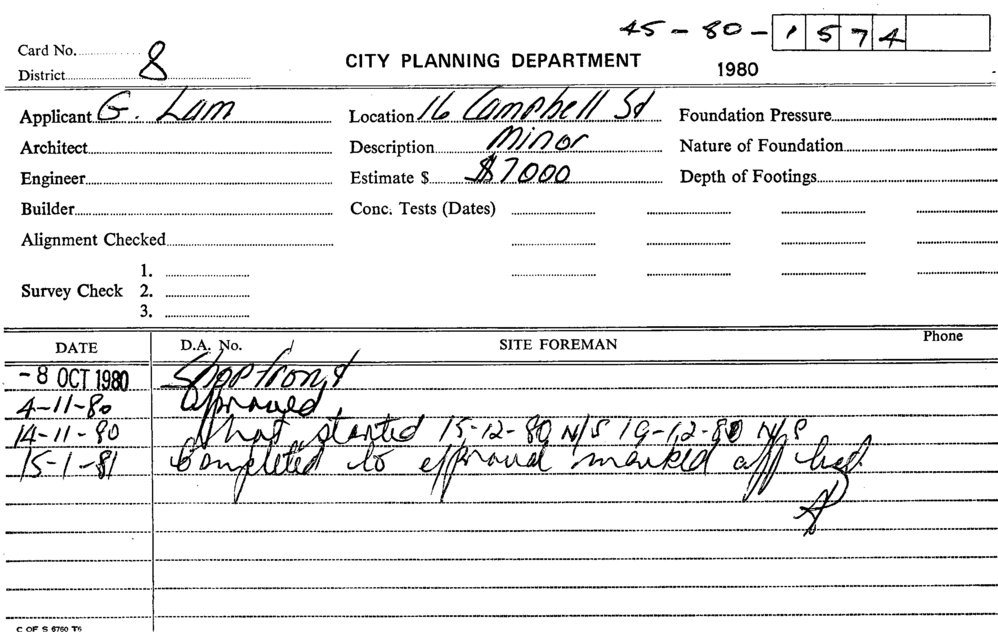 45-80-1574
Card No.
District 8
CITY PLANNING DEPARTMENT
1980
Applicant G. Lam
Location 16 Campbell St
Foundation Pressure
Architect
Description Minor
Nature of Foundation
Engineer
Estimate $ $7000
Depth of Footings
Builder
Conc. Tests (Dates)
Alignment Checked
Survey Check
1.
2.
3.
DATE D.A. No. SITE FOREMAN Phone
- 8 OCT 1980 Shopfront
4-11-80 approved
14-11-80 not started 15-12-80 N/S 19-12-80 N/S
15-1-81 Completed to approval marked off
C OF S 6760 T6